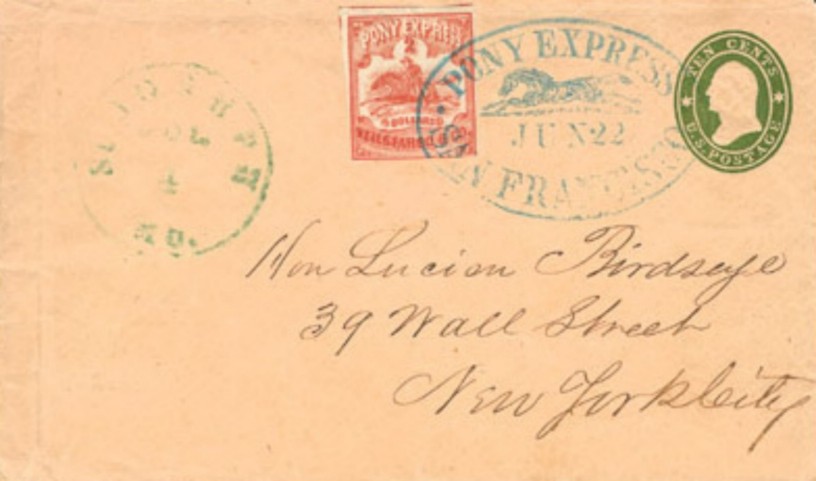 PONY EXPRESS
2
2 DOLLARS
WELLS FARGO & CO.
PONY EXPRESS
JUN 22
SAN FRANCISCO
TEN CENTS
U.S. POSTAGE
ST JOSEPH
4
MO.
Hon Lucien Birdseye
39 Wall Street
New York City